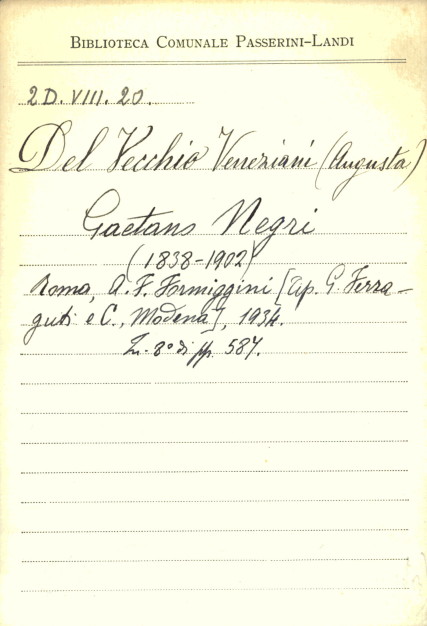 BIBLIOTECA COMUNALE PASSERINI-LANDI
2D. VIII. 20.
Del Vecchio Veneziani (Augusta)
Gaetano Negri
(1838-1902)
Roma, A. F. Formiggini [Tip. G. Ferra-
guti e C., Modena], 1934.
In-8° di pp. 587.